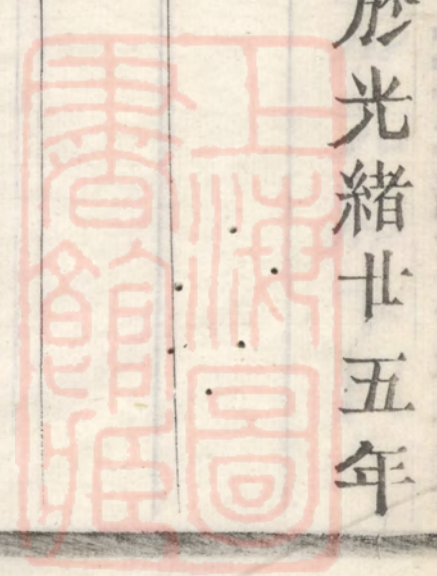 於光緒廿五年
上海圖
書館藏